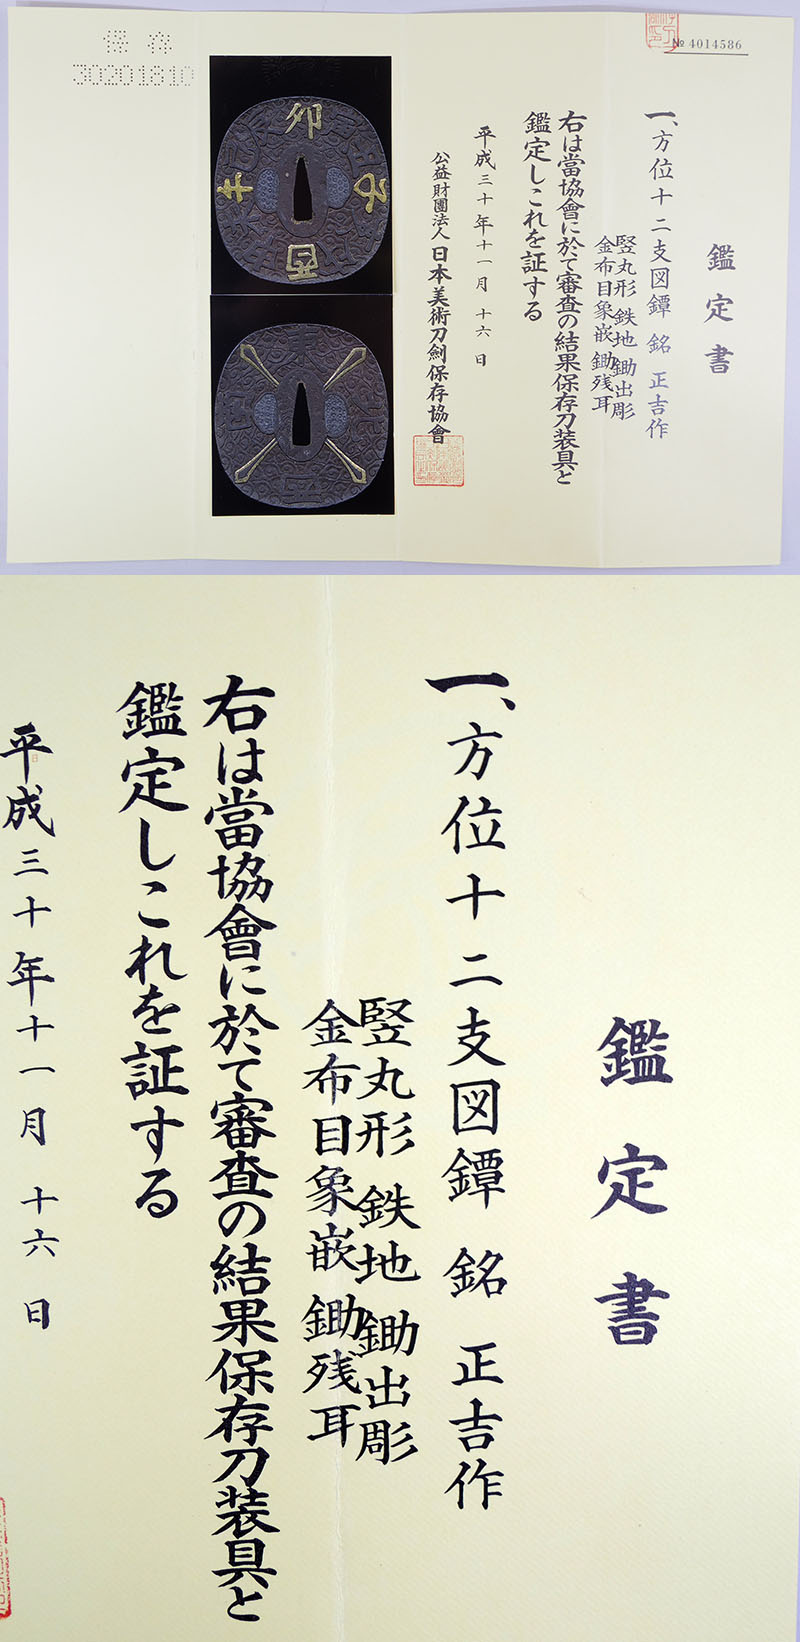 保存
30201810
№ 4014586
鑑定書
一、方位十二支図鐔 銘 正吉作
竪丸形 鉄地 鋤出彫
金布目象嵌 鋤残耳
右は當協會に於て審査の結果保存刀装具と
鑑定しこれを証する
平成三十年十一月 十六 日
公益財團法人 日本美術刀劍保存協會
卯
子
午
酉
鑑定書
一、方位十二支図鐔 銘 正吉作
竪丸形 鉄地 鋤出彫
金布目象嵌 鋤残耳
右は當協會に於て審査の結果保存刀装具と
鑑定しこれを証する
平成三十年十一月 十六 日